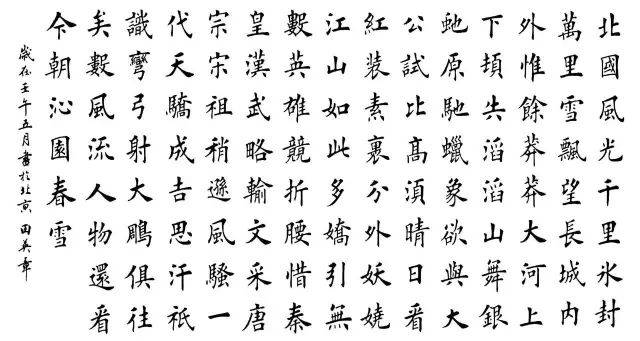 北國風光千里氷封
萬里雪飄望長城内
外惟餘莽莽大河上
下頓失滔滔山舞銀
虵原馳蠟象欲與大
公試比高須晴日看
紅裝素裹分外妖嬈
江山如此多嬌引無
數英雄競折腰惜秦
皇漢武略輸文采唐
宗宋祖稍遜風騷一
代天驕成吉思汗祇
識彎弓射大鵰俱往
矣數風流人物還看
今朝沁園春雪
歲在壬午五月書於北京田英章